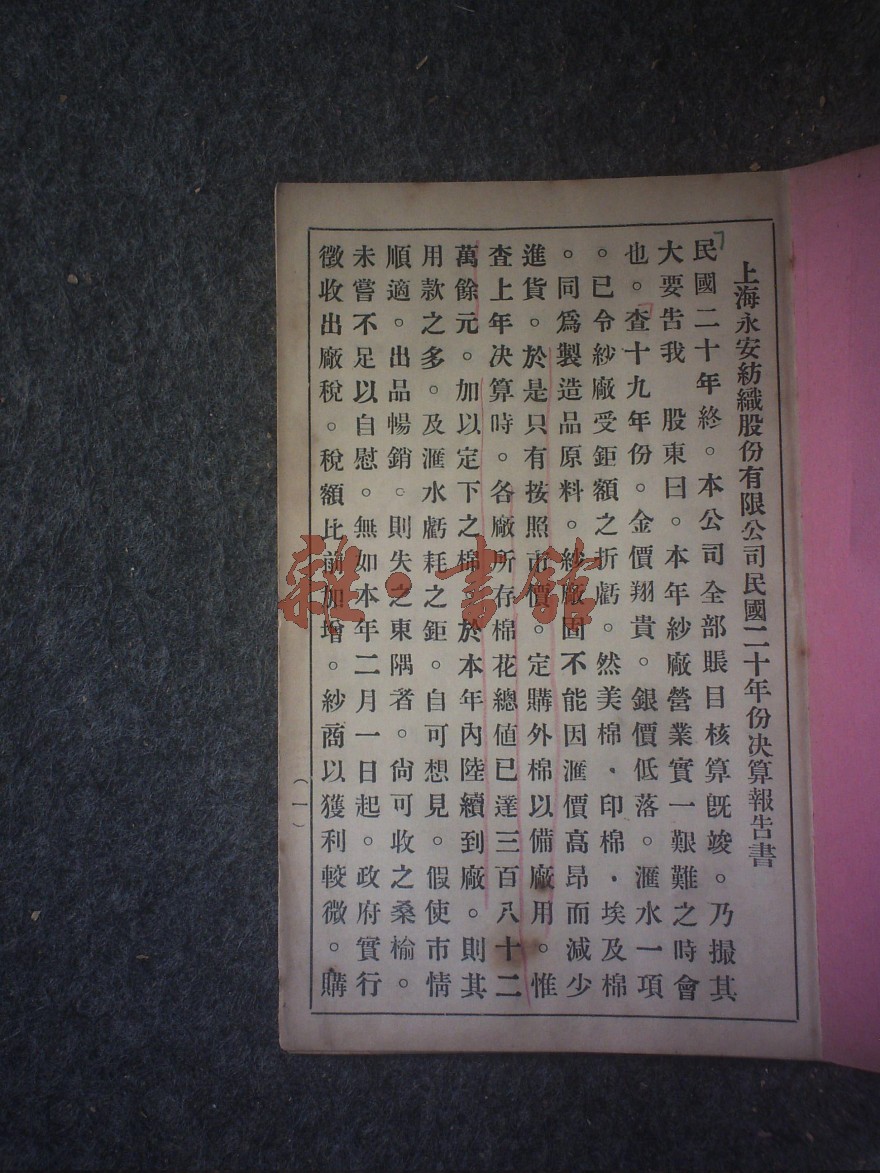 上海永安紡織股份有限公司民國二十年份决算報告書
民國二十年終。本公司全部賬目核算旣竣。乃撮其
大要吿我　股東曰。本年紗廠營業實一艱難之時會
也。查十九年份。金價翔貴。銀價低落。滙水一項
。已令紗廠受鉅額之折虧。然美棉．印棉．埃及棉
。同爲製造品原料。紗廠固不能因滙價高昂而減少
進貨。於是只有按照市價。定購外棉以備廠用。惟
查上年决算時。各廠所存棉花總値已達三百八十二
萬餘元。加以定下之棉。於本年內陸續到廠。則其
用款之多。及滙水虧耗之鉅。自可想見。假使市情
順適。出品暢銷。則失之東隅者。尙可收之桑榆。
未嘗不足以自慰。無如本年二月一日起。政府實行
徵收出廠稅。稅額比前加增。紗商以獲利較微。購
（一）
雜·書館